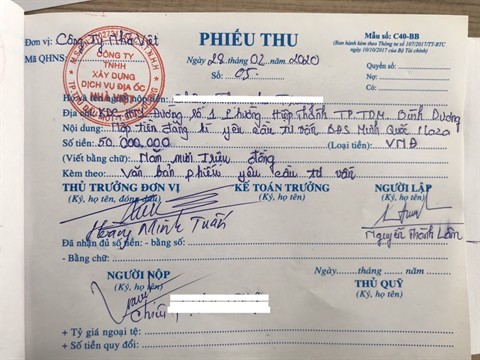 Đơn vị: Công ty Nhà Việt
Mã QHNS:
CÔNG TY
TNHH
XÂY DỰNG
DỊCH VỤ ĐỊA ỐC
NHÀ VIỆT
PHIẾU THU
Ngày 28 tháng 02 năm 2020
Số: 05
Mẫu số: C40-BB
(Ban hành kèm theo Thông tư số 107/2017/TT-BTC
ngày 10/10/2017 của Bộ Tài chính)
Quyển số:
Nợ:
Có:
Họ và tên người nộp tiền:
Địa chỉ: Đường số 1 Phường Hiệp Thành TP.TDM. Bình Dương
Nội dung: Nộp tiền đăng kí yêu cầu tư vấn BĐS Minh Quốc
Số tiền: 50.000.000 (Loại tiền): VNĐ
(Viết bằng chữ): Năm mươi triệu đồng
Kèm theo: Văn bản phiếu yêu cầu tư vấn
THỦ TRƯỞNG ĐƠN VỊ KẾ TOÁN TRƯỞNG NGƯỜI LẬP
(Ký, họ tên, đóng dấu) (Ký, họ tên) (Ký, họ tên)
Hoàng Minh Tuấn Nguyễn Thành Lâm
Đã nhận đủ số tiền: - bằng số:
- Bằng chữ:
Ngày tháng năm
NGƯỜI NỘP THỦ QUỸ
(Ký, họ tên) (Ký, họ tên)
+ Tỷ giá ngoại tệ:
+ Số tiền quy đổi: